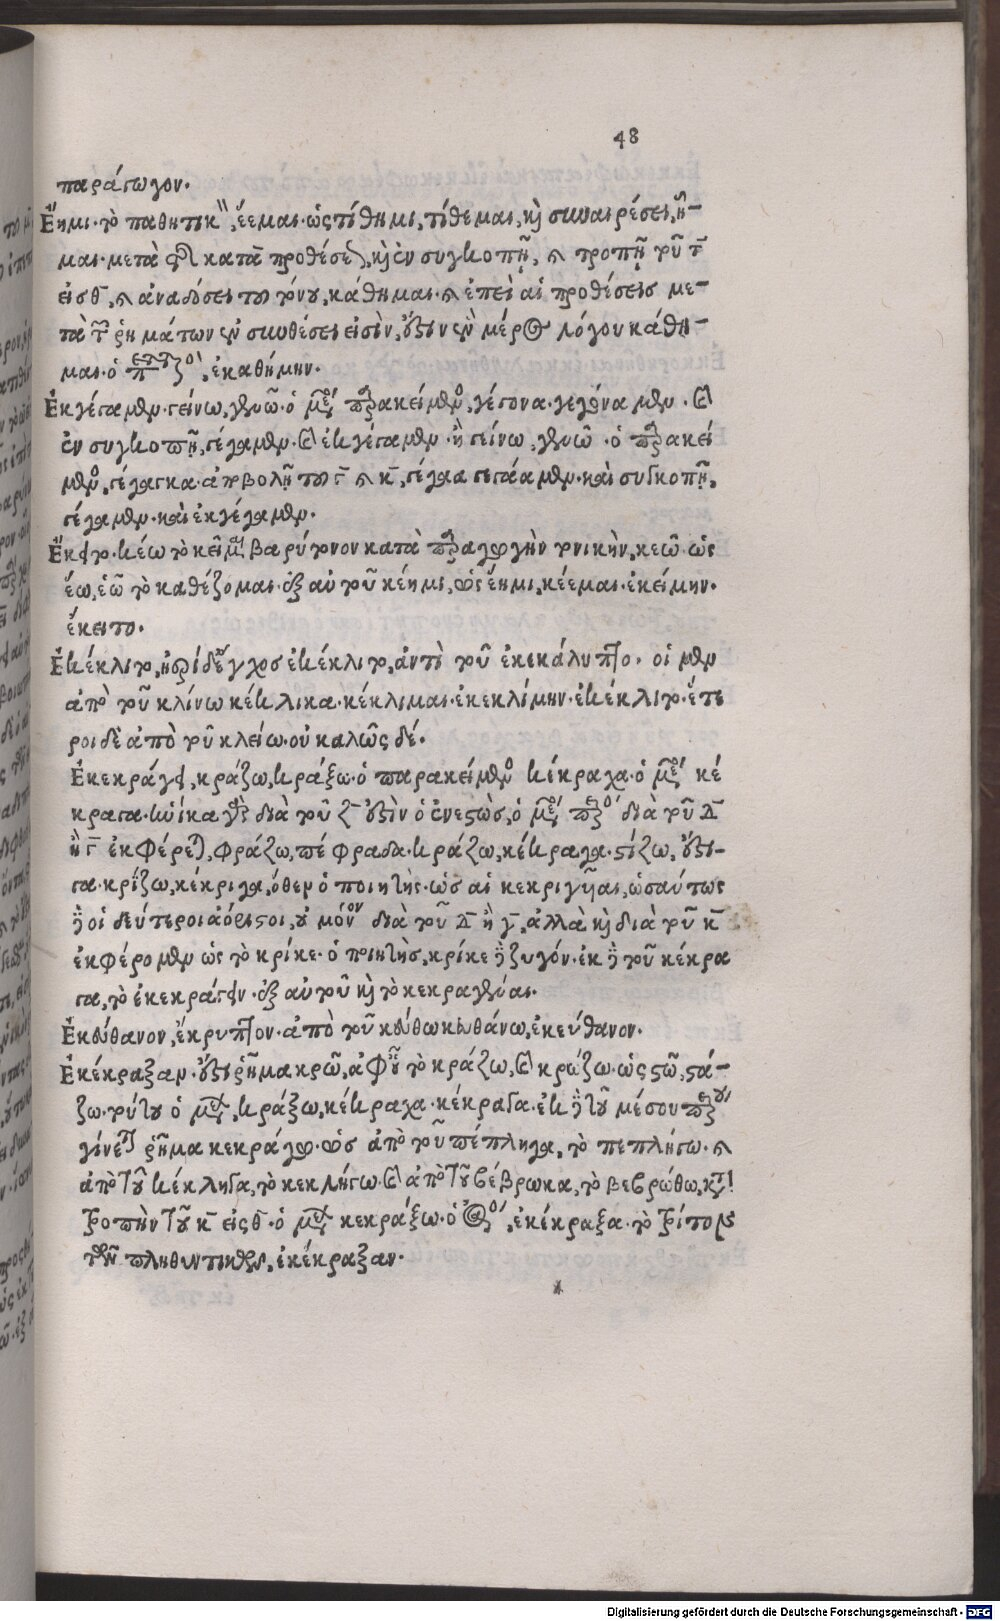 48
παράγωγον.
Ἕημι. τὸ παθητικὸν, ἕεμαι. ὡς τίθημι, τίθεμαι, καὶ συναιρέσει, ἧ-
μαι. μετὰ κατὰ προθέσεως, καὶ ἐν συγκοπῇ, καὶ τροπῇ τοῦ τ̄
εἰς θ̄, καὶ ἀναδόσει τοῦ τόνου, κάθημαι. καὶ ἐπεὶ αἱ προθέσεις με-
τὰ τῶν ῥημάτων ἐν συνθέσει εἰσὶν, οὕτω μέρος λόγου κάθη-
μαι. ὁ παρατατικὸς, ἐκαθήμην.
Ἐκγέγαμεν. γείνω, γενῶ. ὁ μέσος παρακείμενος, γέγονα. γεγόναμεν. καὶ
ἐν συγκοπῇ, γέγαμεν. καὶ ἐκγέγαμεν. ἢ γείνω, γενῶ. ὁ παρακεί
μενος, γέγαγκα. ἀποβολῇ τοῦ γ̄ καὶ κ̄, γέγαα γεγάαμεν. καὶ συγκοπῇ,
γέγαμεν. καὶ ἐκγέγαμεν.
Ἔκειτο. κέω τὸ κεῖμαι βαρύτονον κατὰ παραγωγὴν ποιητικὴν, κεῶ. ὡς
ἕω, ἑῶ τὸ καθέζομαι. ἐξ αὐτοῦ κέημι, ὡς ἕημι, κέεμαι. ἐκείμην.
ἔκειτο.
Ἐκέκλιτο, ἠερίδ' ἔγχος ἐκέκλιτο, ἀντὶ τοῦ ἐκεκάλυπτο. οἱ μὲν
ἀπὸ τοῦ κλίνω κέκλικα. κέκλιμαι. ἐκεκλίμην. ἐκέκλιτο. ἕτε
ροι δὲ ἀπὸ τοῦ κλείω. οὐ καλῶς δέ.
Ἐκεκράγει, κράζω, κράξω. ὁ παρακείμενος κέκραχα. ὁ μέσος κέ
κραγα. ἡνίκα γὰρ διὰ τοῦ ζ̄ ἐστὶν ὁ ἐνεστὼς, ὁ μέσος παρακείμενος διὰ τοῦ δ̄
ἢ γ̄ ἐκφέρεται, φράζω, πέφραδα. κράζω, κέκραγα. στίζω, ἔστι-
γα. κρίζω, κέκριγα, ὅθεν ὁ ποιητής. ὡς αἱ κεκριγῦαι, ὡσαύτως
καὶ οἱ δεύτεροι ἀόριστοι, οὐ μόνον διὰ τοῦ δ̄ ἢ γ̄, ἀλλὰ καὶ διὰ τοῦ κ̄
ἐκφέρομεν ὡς τὸ κρίκε. ὁ ποιητὴς, κρίκε δὲ ζυγόν. ἐκ δὲ τοῦ κέκρα
γα, τὸ ἐκεκράγειν. ἐξ αὐτοῦ καὶ τὸ κεκραγέναι.
Ἐκεύθανον, ἔκρυπτον. ἀπὸ τοῦ κεύθω κευθάνω, ἐκεύθανον.
Ἐκέκραξαν. ἔστι ῥῆμα κρῶ, ἀφ' οὗ τὸ κράζω, καὶ κρώζω. ὡς στῶ, στά-
ζω. τούτου ὁ μέλλων, κράξω, κέκραχα. κέκραγα. ἐκ δὲ τοῦ μέσου παρακειμένου
γίνεται ῥῆμα κεκράγω. ὡς ἀπὸ τοῦ πέπληγα, τὸ πεπλήγω. καὶ
ἀπὸ τοῦ κέκληγα, τὸ κεκλήγω. καὶ ἀπὸ τοῦ βέβρωκα, τὸ βεβρώθω, κατὰ
τροπὴν τοῦ κ̄ εἰς θ̄. ὁ μέλλων κεκράξω. ὁ ἀόριστος, ἐκέκραξα. τὸ τρίτον
τῶν πληθυντικῶν, ἐκέκραξαν.
Digitalisierung gefördert durch die Deutsche Forschungsgemeinschaft - DFG